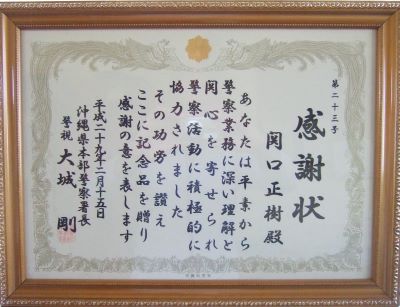 第二十三号
感謝状
関口正樹殿
あなたは平素から
警察業務に深い理解と
関心を寄せられ
警察活動に積極的に
協力されました
その功労を讃え
ここに記念品を贈り
感謝の意を表します
平成二十九年二月十五日
沖縄県本部警察署長
警視 大城 剛